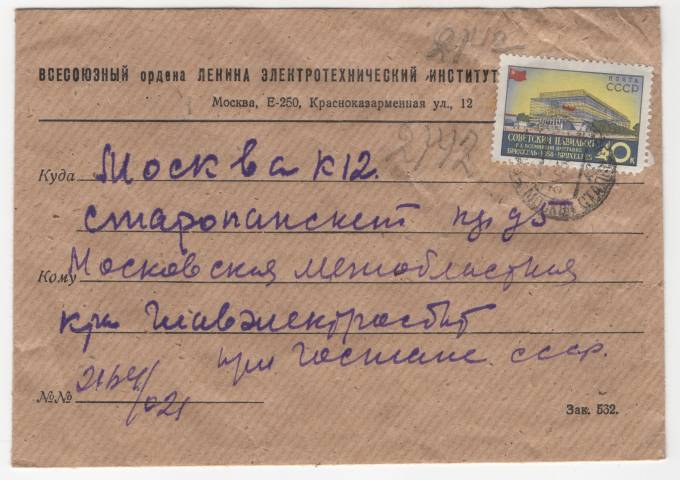 ВСЕСОЮЗНЫЙ ордена ЛЕНИНА ЭЛЕКТРОТЕХНИЧЕСКИЙ ИНСТИТУТ
Москва, Е-250, Красноказарменная ул., 12
ПОЧТА
СССР
СОВЕТСКИЙ ПАВИЛЬОН
БРЮССЕЛЬ·1958·BRUXELLES
40 К
Куда Москва К12.
старопанский пр д 5
Кому Московская межобластная
Главэлектросбыт
при Госплане СССР.
№№
Зак. 532.